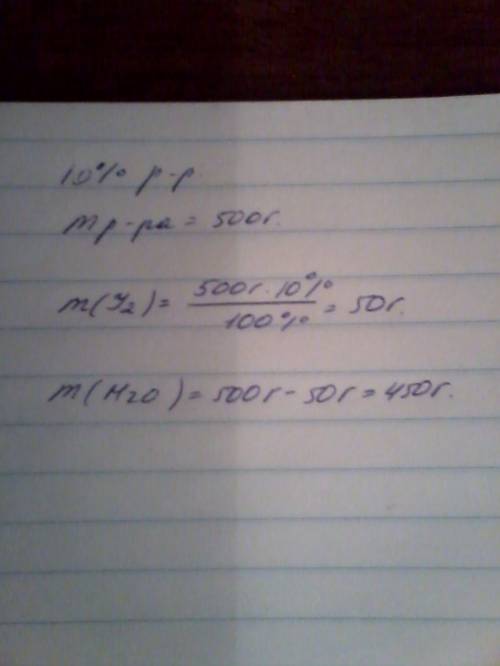 10% р-р.
mр-ра = 500г.
m(J2) = 500г · 10% / 100% = 50г.
m(H2O) = 500г - 50г = 450г.